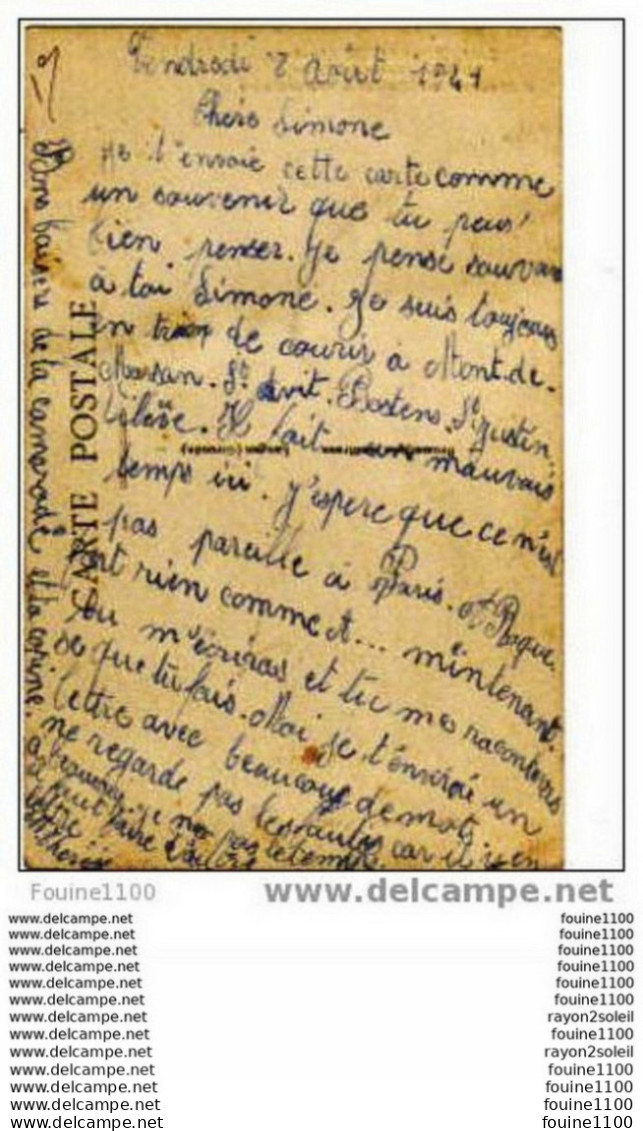 Vendredi 8 Août 1941
Chère Simone
Je t'envoie cette carte comme
un souvenir que tu peus
bien penser. Je pense souvan
à toi Simone. Je suis toujours
en train de courir à Mont-de-
Marsan. St Avit. Bostens. St Justin.
Il fait un mauvais
temps ici. J'espere que ce n'est
pas pareille à Paris. St Roque.
rien comme et... mintenant.
tu m'écriras et tu me raconteras
se que tu fais. Moi je t'envoirai un
lettre avec beaucoup de mots
ne regarde pas les fautes car il y en
a beaucoup. je na pas le temps
Bons baisers de la camarade et la copine.
CARTE POSTALE
Fouine1100
www.delcampe.net
www.delcampe.net fouine1100
www.delcampe.net fouine1100
www.delcampe.net fouine1100
www.delcampe.net fouine1100
www.delcampe.net fouine1100
www.delcampe.net fouine1100
www.delcampe.net rayon2soleil
www.delcampe.net fouine1100
www.delcampe.net rayon2soleil
www.delcampe.net fouine1100
www.delcampe.net fouine1100
www.delcampe.net fouine1100
www.delcampe.net fouine1100